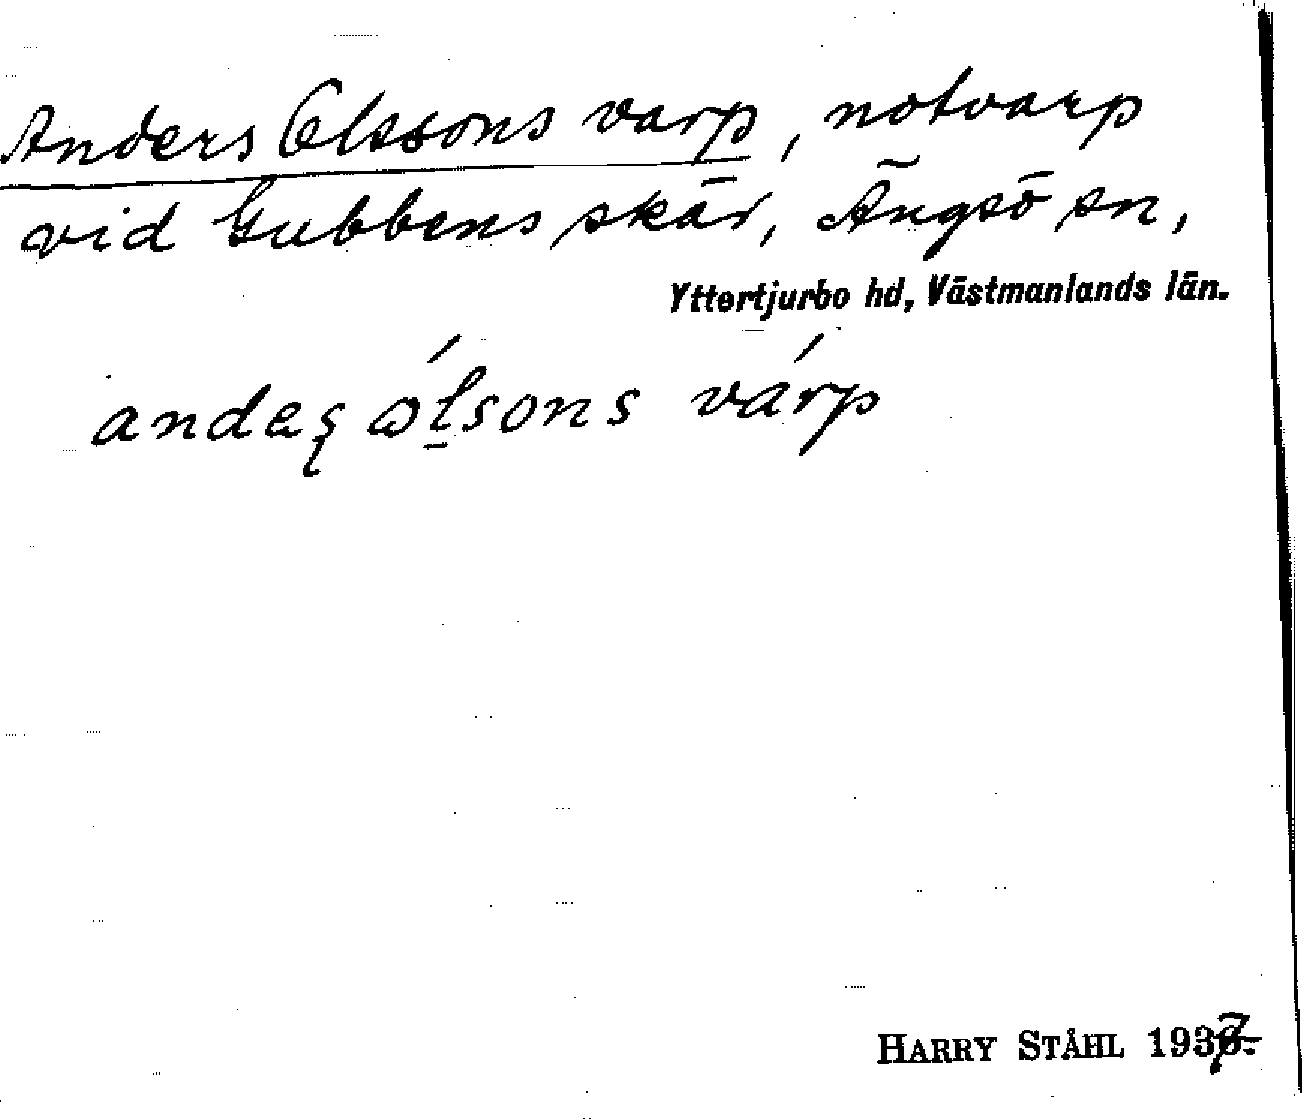 Anders Olssons varp, notvarp
vid Gubbens skär, Ängsö sn,
Yttertjurbo hd, Västmanlands län.
andaʂ ɷ́l̠sons várp
HARRY STÅHL 1937.